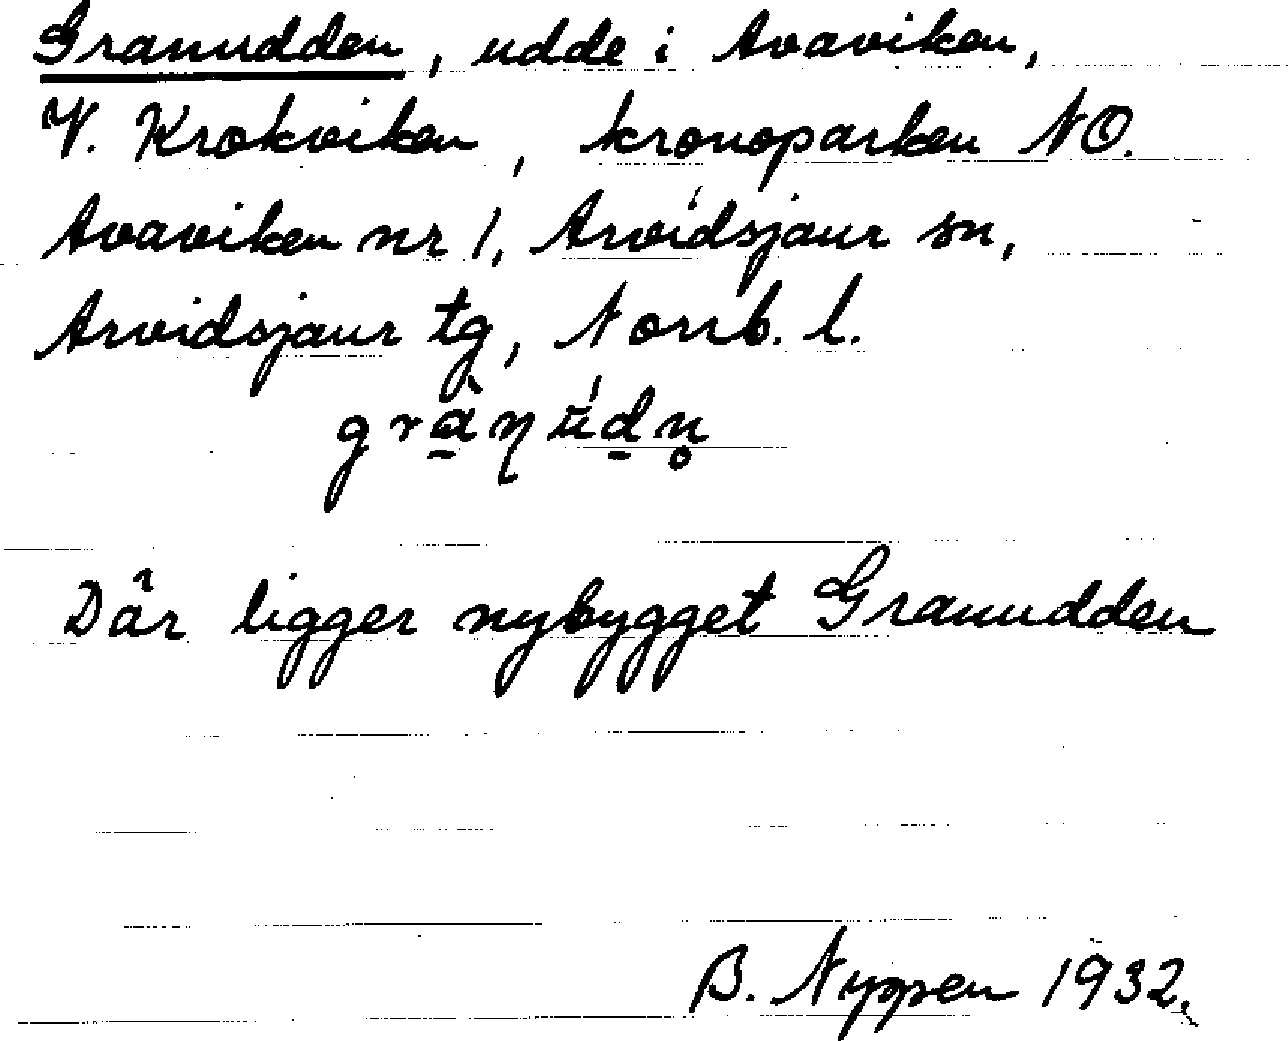 Granudden, udde i Avaviken,
V. Krokviken, kronoparken NO.
Avaviken nr 1, Arvidsjaur sn,
Arvidsjaur tg, Norrb. l.
grà̱ŋ ʉ́ḏn̥
Där ligger nybygget Granudden
B. Nyppen 1932.